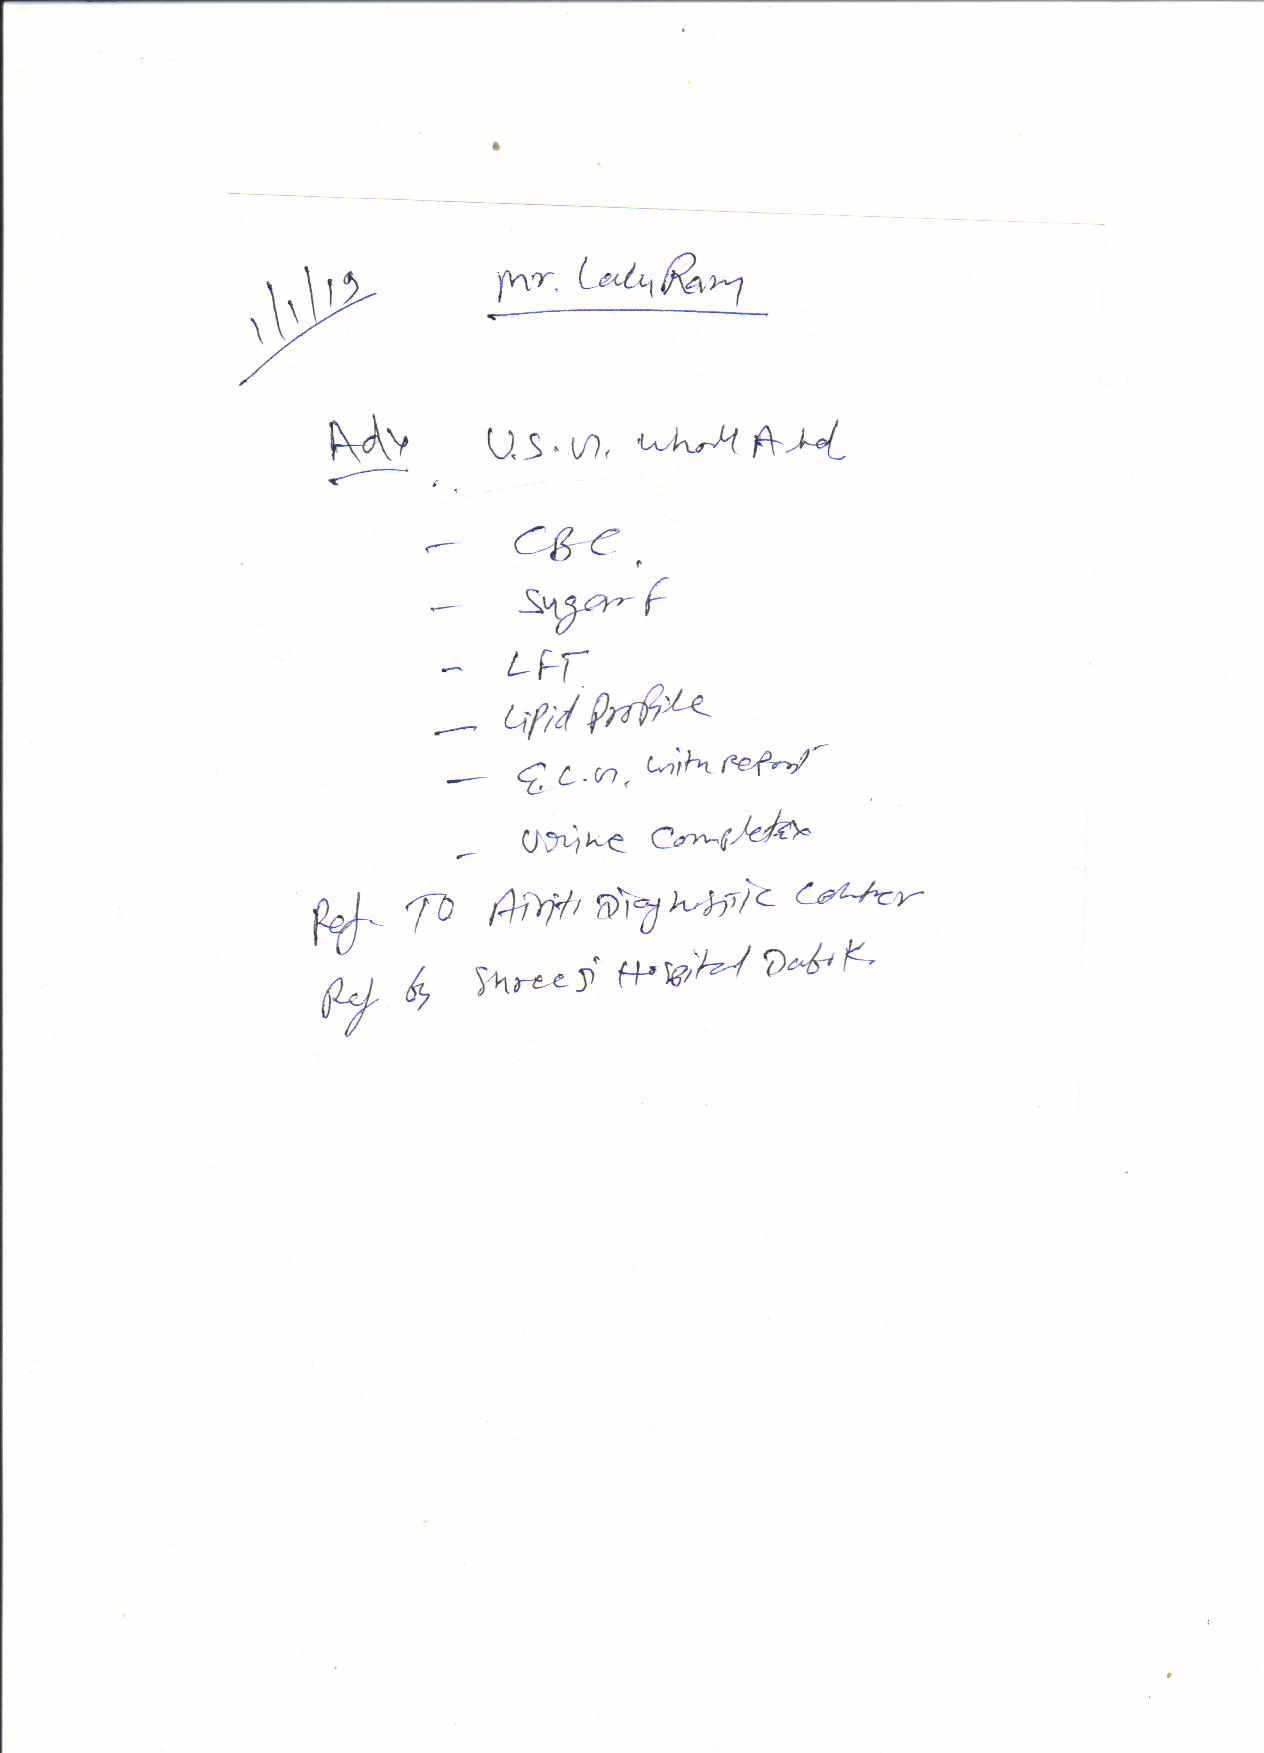 1/1/19
Mr. Lalu Ram
Adv U.S.G. Whole Abd
- CBC.
- Sugar F
- LFT
- Lipid Profile
- E.C.G. with report
- Urine Complete
Ref TO Diagnostic Center
Ref by Shreeji Hospital Dabok.